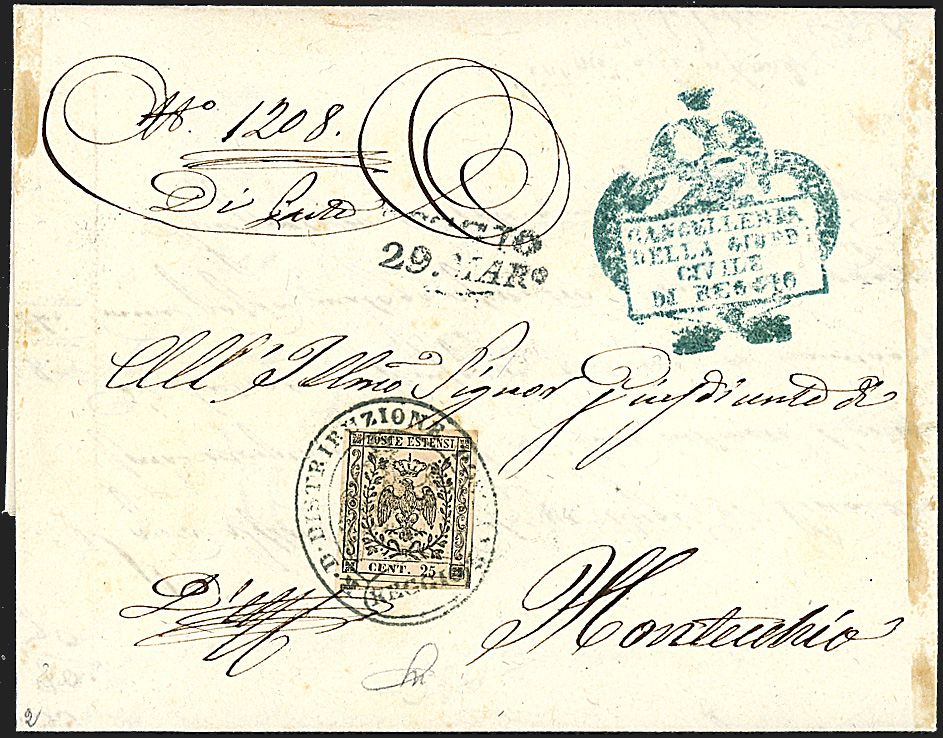 N.º 1208.
Di
29. MAR.º
CANCELLERIA
DELLA GIUSD
CIVILE
DI REGGIO
All' Illmõ Signor Giusdicente di
DISTRIBUZIONE
POSTE ESTENSI
CENT. 25
REGGIO
D'Uff
Montecchio
2